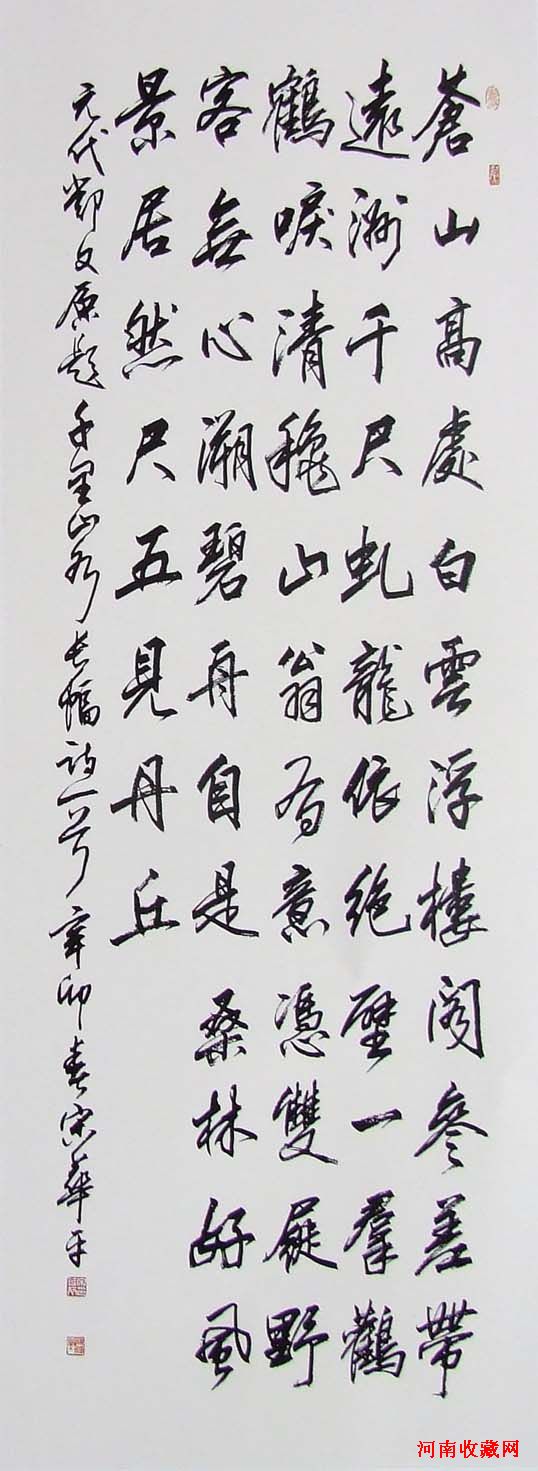 蒼山高處白雲浮樓閣參差帶
遠洲千尺虬龍依絕壁一羣鸛
鶴唳清穐山翁有意憑雙屐野
客無心溯碧舟自是桑林好風
景居然尺五見丹丘
元代鄧文原題千里山水長幅詩一首辛卯春宋華平
河南收藏网